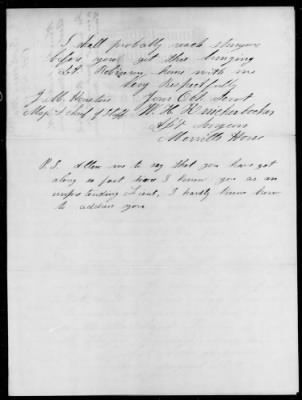 I shall probably reach
before you get this bringing
Lt. Robinson home with me
Very Respectfully
J. M. Houston Your Obt. Servt
Maj & chief of W. H. Knickerbocker
Surgeon
Merrill's Horse
P.S. Allow me to say that you have got
along so fast since I knew you as an
unpretending Lieut, I hardly know how
to address you